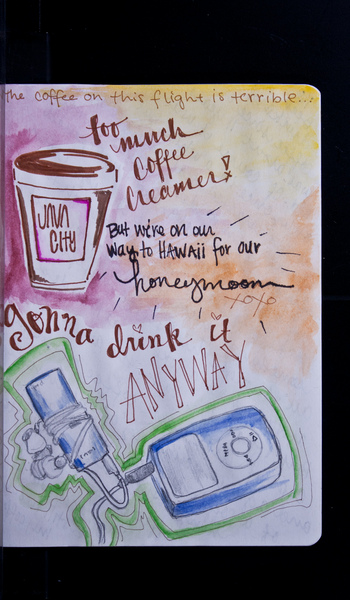 the coffee on this flight is terrible...
too
much
coffee
creamer!
JAVA
CITY
But we're on our
way to HAWAII for our
honeymoon
xoxo
gonna drink it
ANYWAY